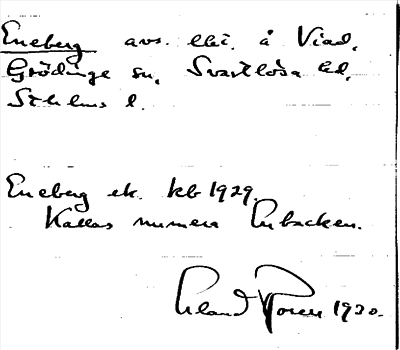 Eneberg avs. lht. å Viad,
Grödinge sn, Svartlösa hd,
Sthlms l.
Eneberg ek. kb 1929.
Kallas numera Enbacken.
Erland Rosell 1930.